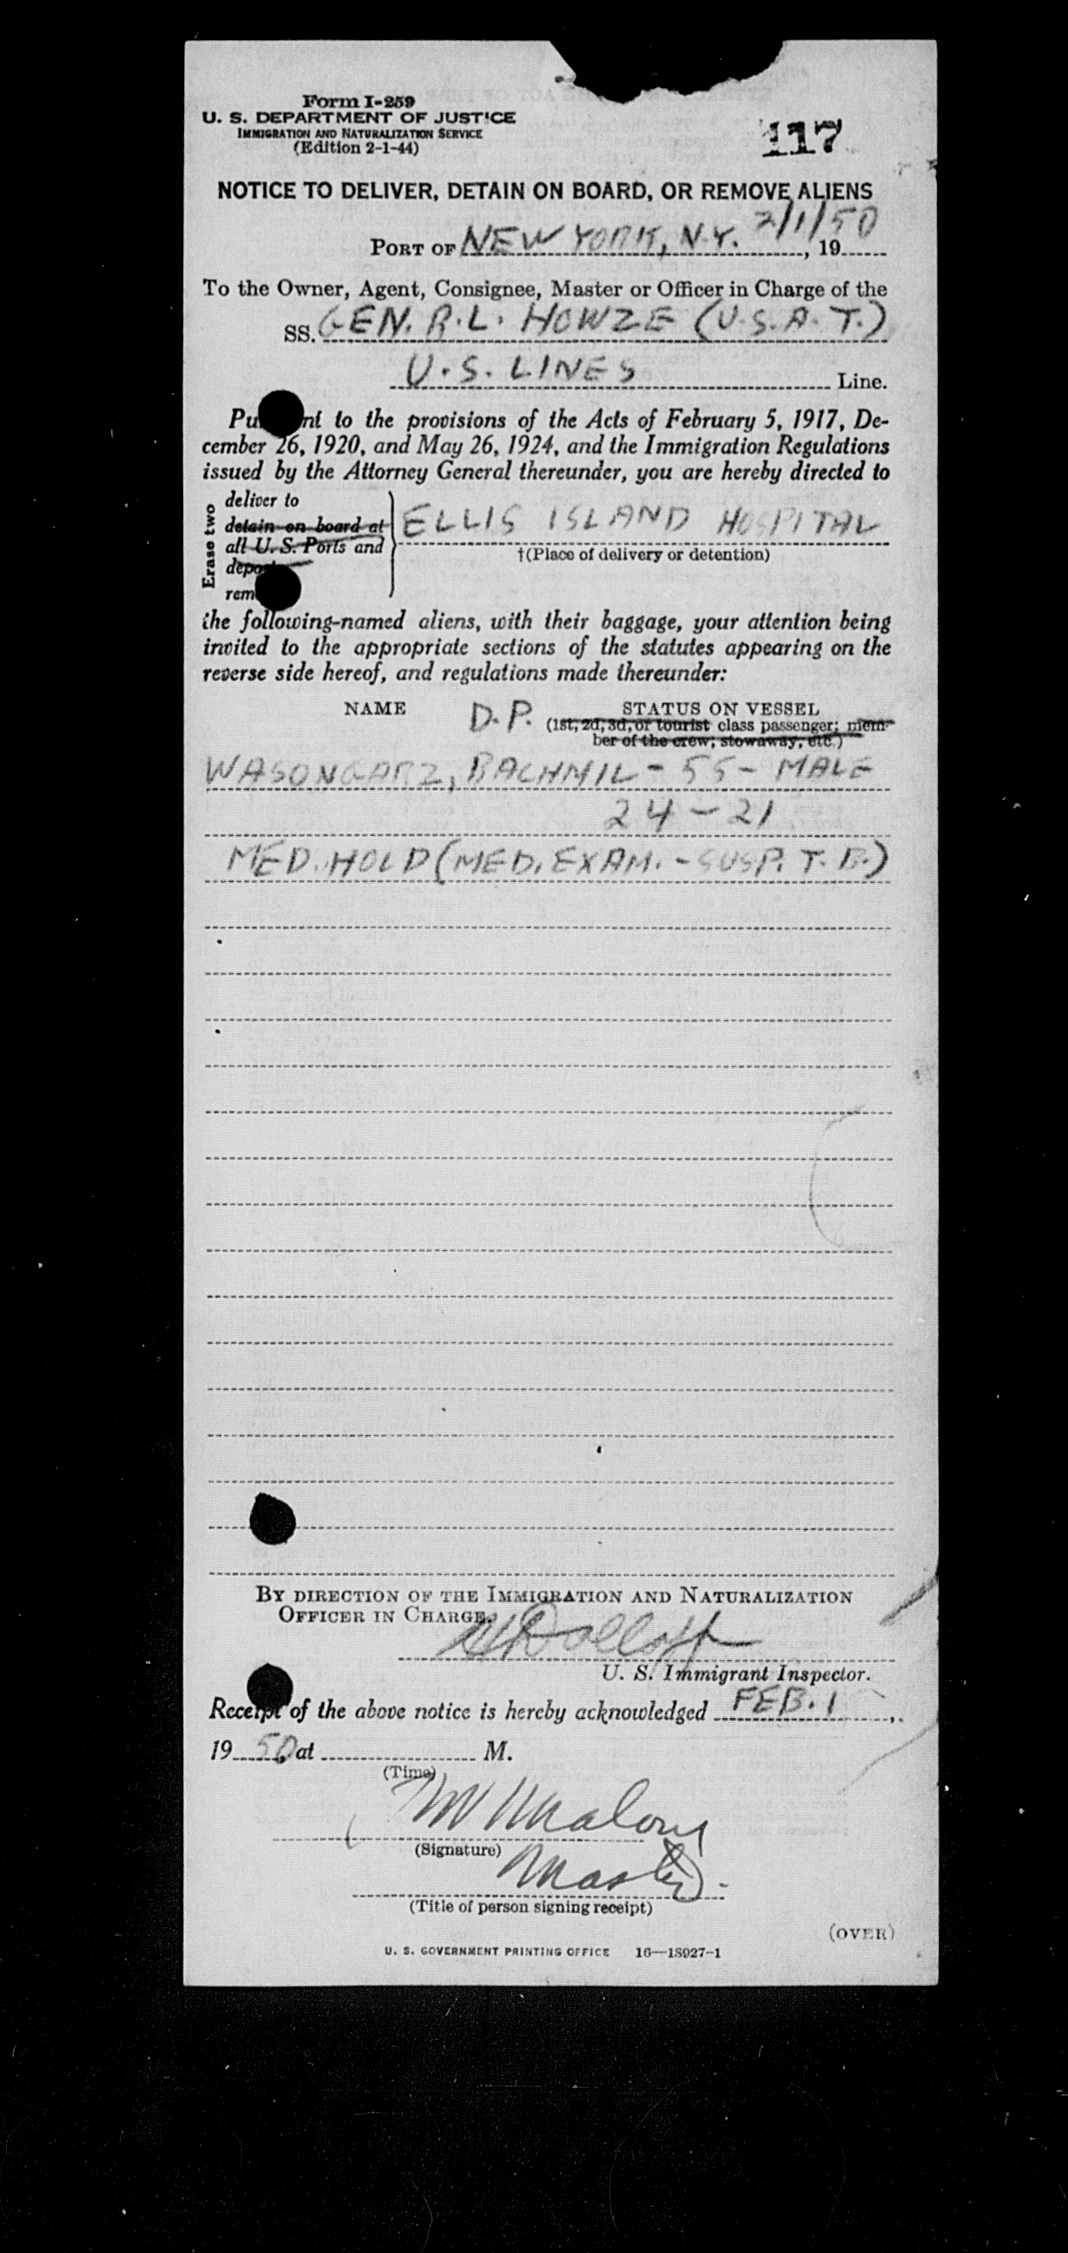 Form I-259
U. S. DEPARTMENT OF JUSTICE
IMMIGRATION AND NATURALIZATION SERVICE
(Edition 2-1-44)
117
NOTICE TO DELIVER, DETAIN ON BOARD, OR REMOVE ALIENS
PORT OF NEW YORK, N.Y. 2/1/50, 19
To the Owner, Agent, Consignee, Master or Officer in Charge of the
SS. GEN. R.L. HOWZE (U.S.A.T.)
U.S. LINES Line.
Pu nt to the provisions of the Acts of February 5, 1917, De-
cember 26, 1920, and May 26, 1924, and the Immigration Regulations
issued by the Attorney General thereunder, you are hereby directed to
Erase two
deliver to
detain on board at
all U. S. Ports and
depo
rem
ELLIS ISLAND HOSPITAL
†(Place of delivery or detention)
the following-named aliens, with their baggage, your attention being
invited to the appropriate sections of the statutes appearing on the
reverse side hereof, and regulations made thereunder:
NAME D.P. STATUS ON VESSEL
(1st, 2d, 3d, or tourist class passenger; mem-
ber of the crew; stowaway, etc.)
BACHMIL - 55 - MALE
24 - 21
MED. HOLD (MED. EXAM. - SUSP. T.B.)
BY DIRECTION OF THE IMMIGRATION AND NATURALIZATION
OFFICER IN CHARGE.
U. S. Immigrant Inspector.
Receipt of the above notice is hereby acknowledged FEB. 1,
19 50, at M.
(Time)
(Signature)
Master.
(Title of person signing receipt)
(OVER)
U. S. GOVERNMENT PRINTING OFFICE 16—18927-1